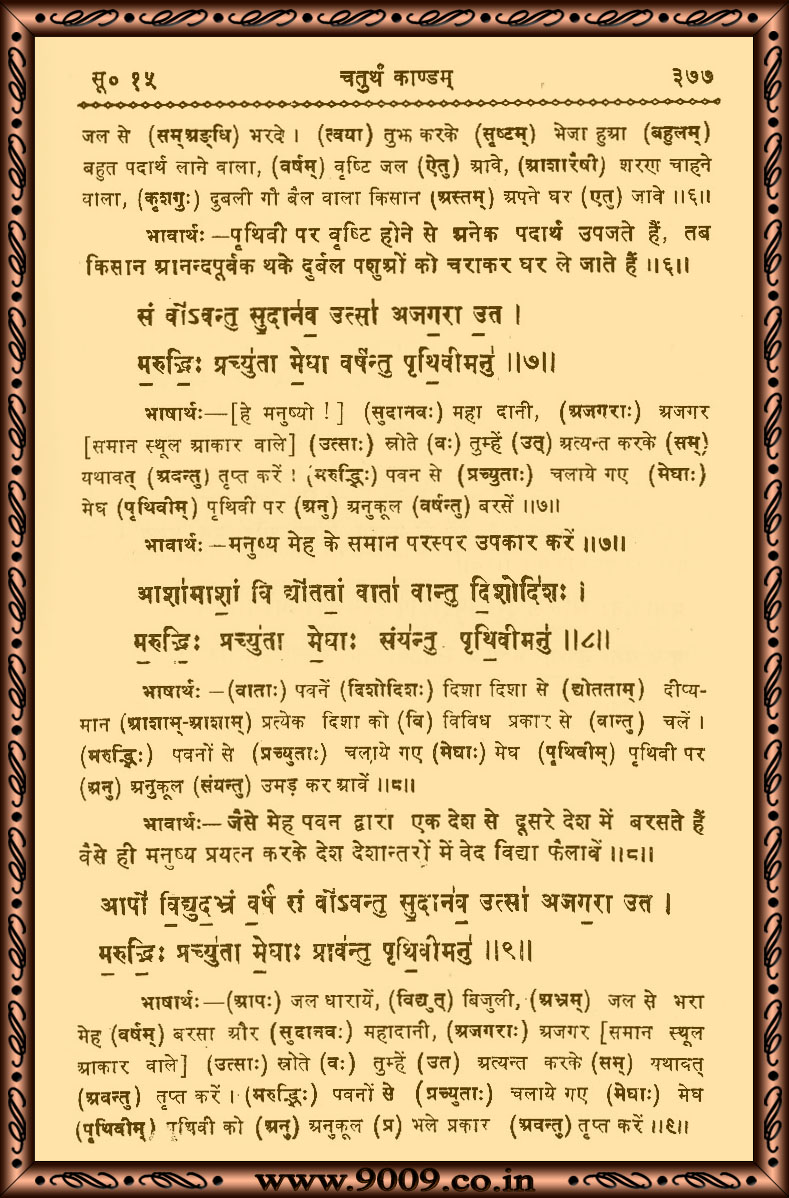 सू० १५ चतुर्थं काण्डम् ३७७
जल से (सम्श्रङ्धि) भरदे । (त्वया) तुझ करके (सृष्टम्) भेजा हुआ (बहुलम्)
बहुत पदार्थ लाने वाला, (वर्षम्) वृष्टि जल (ऐतु) आवे, (आशारैषी) शरण चाहने
वाला, (कृशगुः) दुबली गौ बैल वाला किसान (अस्तम्) अपने घर (एतु) जावे ॥६॥
भावार्थः—पृथिवी पर वृष्टि होने से अनेक पदार्थ उपजते हैं, तब
किसान आनन्दपूर्वक थके दुर्बल पशुओं को चराकर घर ले जाते हैं ॥६॥
सं वो॑ऽवन्तु॒ सु॒दान॑व॒ उत्सा॑ अजग॒रा उ॒त ।
म॒रुद्भिः॒ प्रच्यु॑ता मे॒घा वर्ष॑न्तु पृथि॒वीमनु॑ ॥७॥
भाषार्थः—[हे मनुष्यो !] (सुदानवः) महा दानी, (अजगराः) अजगर
[समान स्थूल आकार वाले] (उत्साः) स्रोते (वः) तुम्हें (उत्) अत्यन्त करके (सम्)
यथावत् (अवन्तु) तृप्त करें ! (मरुद्भिः) पवन से (प्रच्युताः) चलाये गए (मेघाः)
मेघ (पृथिवीम्) पृथिवी पर (अनु) अनुकूल (वर्षन्तु) बरसें ॥७॥
भावार्थः—मनुष्य मेह के समान परस्पर उपकार करें ॥७॥
आशा॑माशां॒ वि द्यो॑ततां॒ वाता॑ वान्तु दि॒शोदि॑शः ।
म॒रुद्भिः॒ प्रच्यु॑ता मे॒घाः संय॑न्तु पृथि॒वीमनु॑ ॥८॥
भाषार्थः—(वाताः) पवनें (दिशोदिशः) दिशा दिशा से (द्योतताम्) दीप्य-
मान (आशाम्-आशाम्) प्रत्येक दिशा को (वि) विविध प्रकार से (वान्तु) चलें ।
(मरुद्भिः) पवनों से (प्रच्युताः) चलाये गए (मेघाः) मेघ (पृथिवीम्) पृथिवी पर
(अनु) अनुकूल (संयन्तु) उमड़ कर आवें ॥८॥
भावार्थः—जैसे मेह पवन द्वारा एक देश से दूसरे देश में बरसते हैं
वैसे ही मनुष्य प्रयत्न करके देश देशान्तरों में वेद विद्या फैलावें ॥८॥
आपो॑ वि॒द्युद॒भ्रं व॒र्षं सं वो॑ऽवन्तु सु॒दान॑व॒ उत्सा॑ अजग॒रा उत ।
म॒रुद्भिः॒ प्रच्यु॑ता मे॒घाः प्राव॑न्तु पृथि॒वीमनु॑ ॥९॥
भाषार्थः—(आपः) जल धारायें, (विद्युत्) बिजुली, (अभ्रम्) जल से भरा
मेह (वर्षम्) बरसा और (सुदानवः) महादानी, (अजगराः) अजगर [समान स्थूल
आकार वाले] (उत्साः) स्रोते (वः) तुम्हें (उत) अत्यन्त करके (सम्) यथावत्
(अवन्तु) तृप्त करें । (मरुद्भिः) पवनों से (प्रच्युताः) चलाये गए (मेघाः) मेघ
(पृथिवीम्) पृथिवी को (अनु) अनुकूल (प्र) भले प्रकार (अवन्तु) तृप्त करें ॥९॥
www.9009.co.in